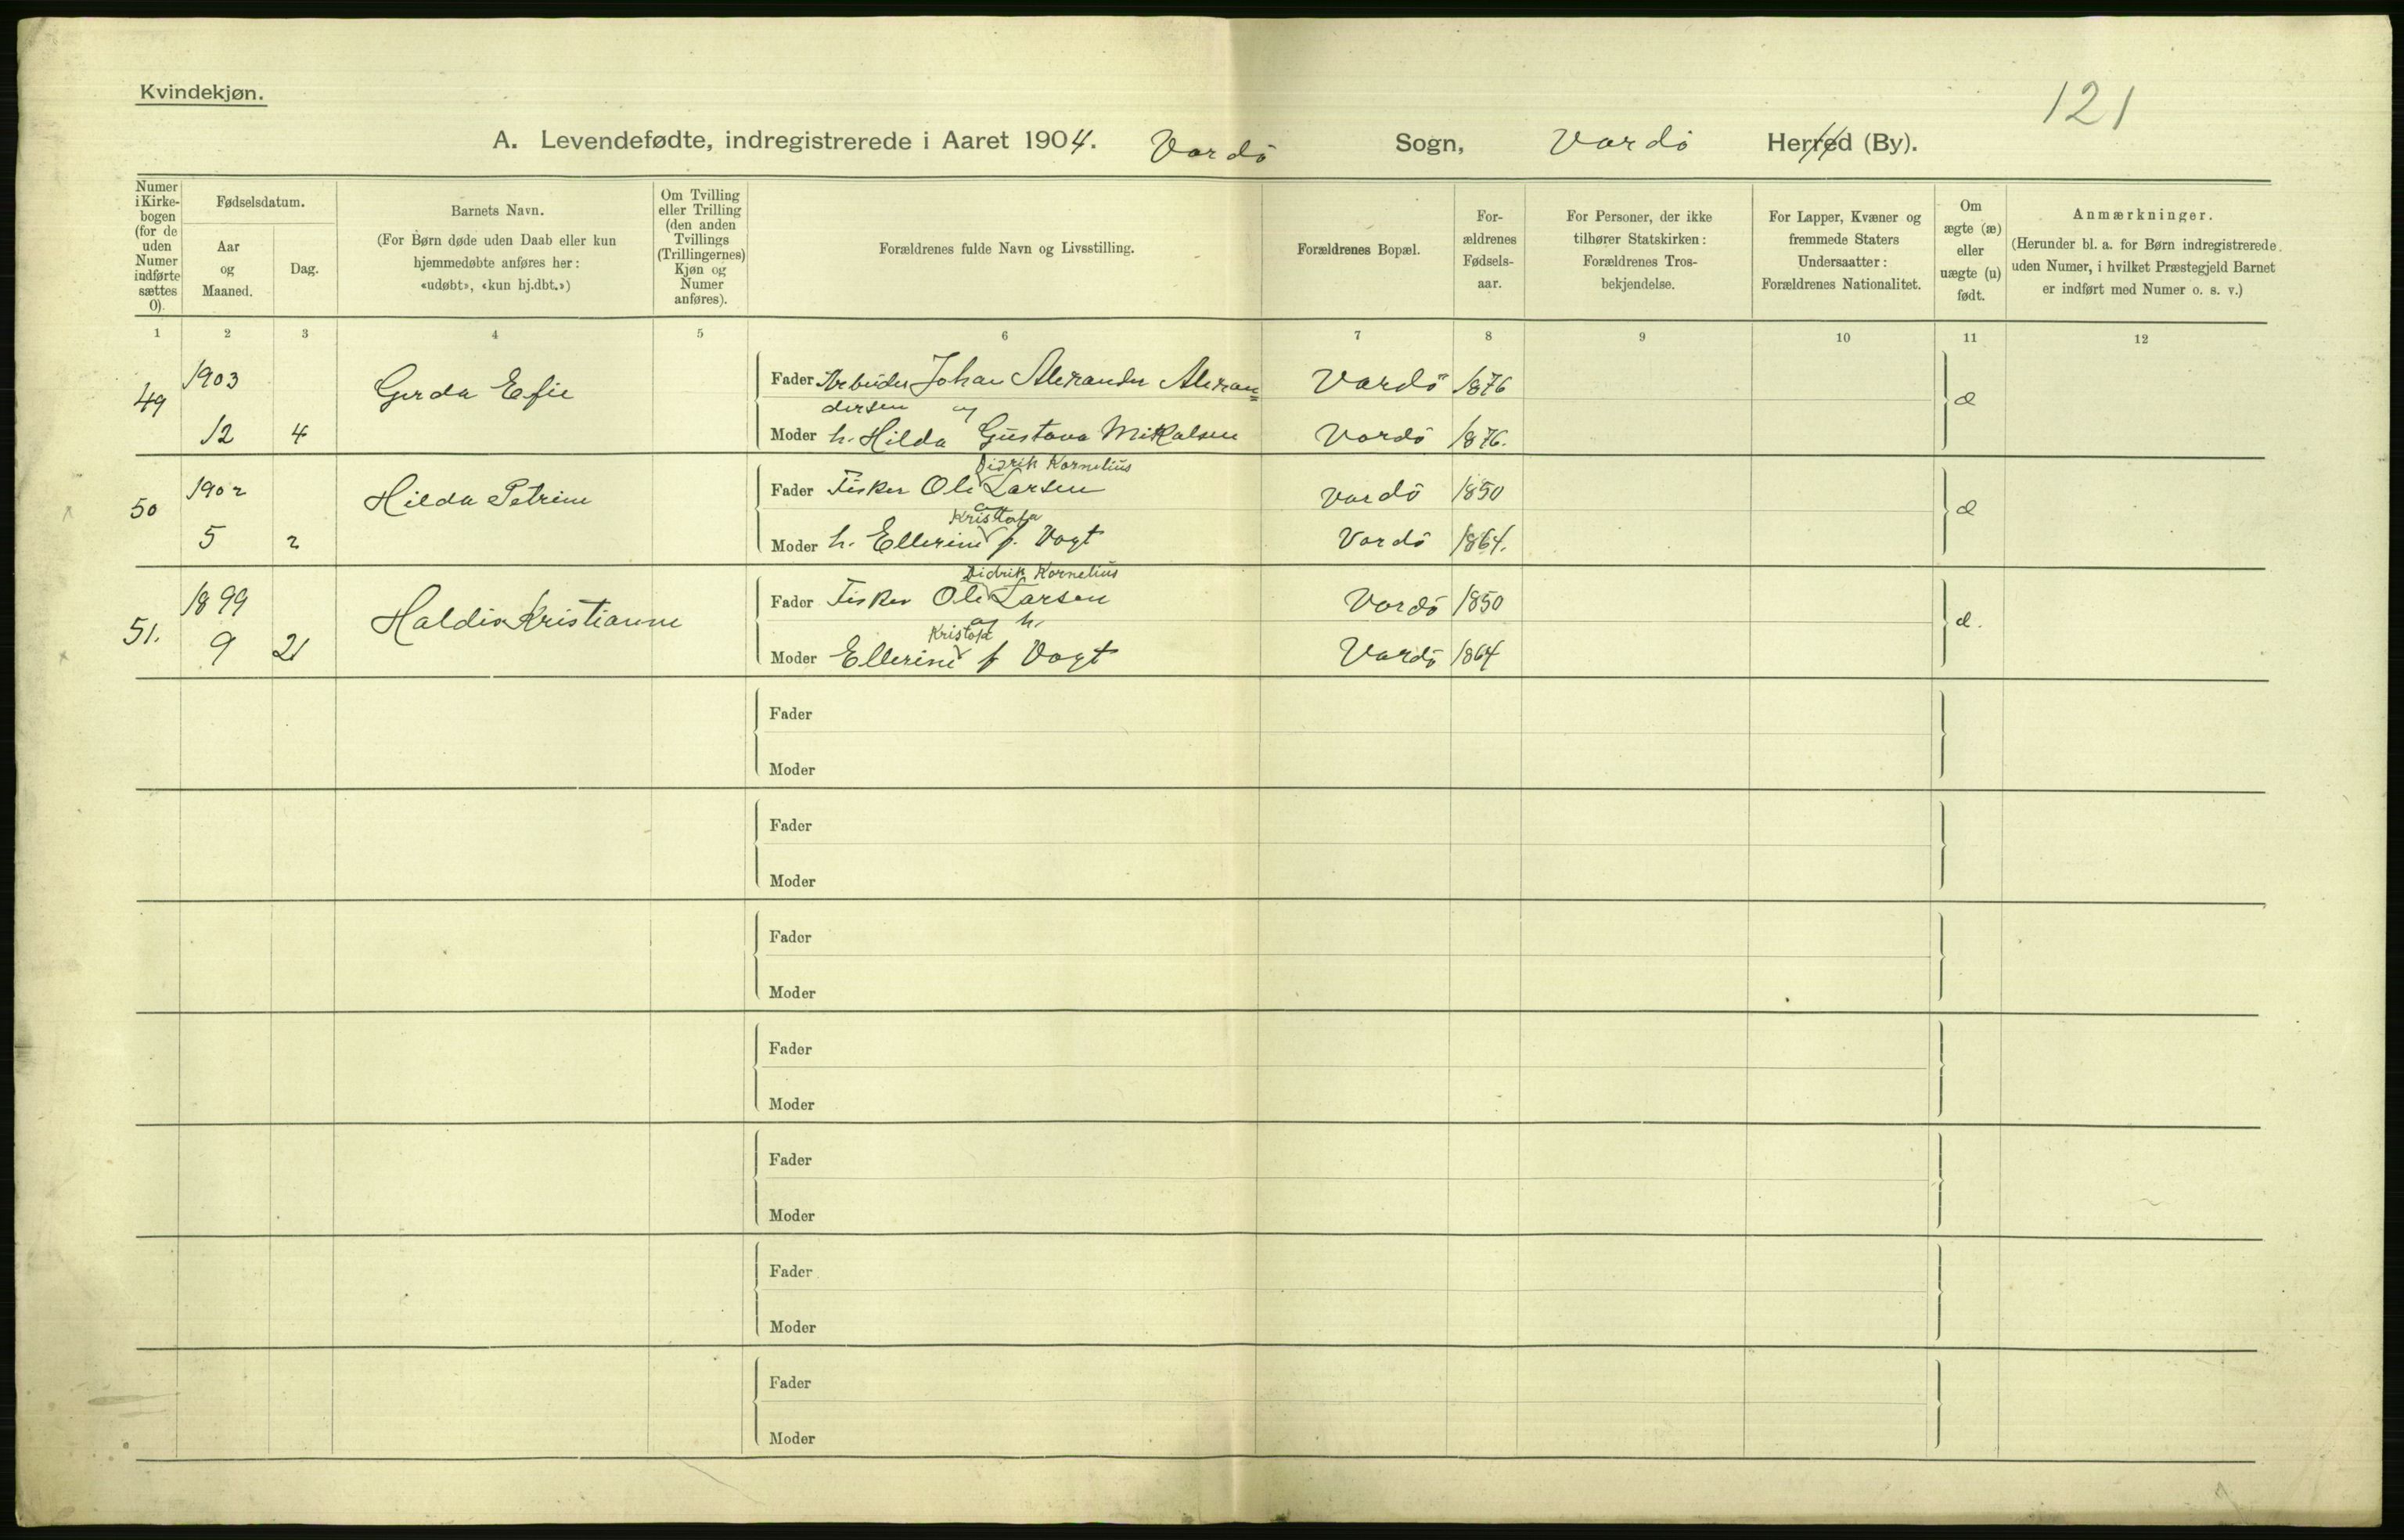 Kvindekjøn.
121
A. Levendefødte, indregistrerede i Aaret 1904. Vardö Sogn, Vardö Herred (By).
Numer i Kirkebogen (for de uden Numer indførte sættes 0).
Fødselsdatum.
Aar og Maaned.
Dag.
Barnets Navn.
(For Børn døde uden Daab eller kun hjemmedøbte anføres her: «udøbt», «kun hj.dbt.»)
Om Tvilling eller Trilling (den anden Tvillings (Trillingernes) Kjøn og Numer anføres).
Forældrenes fulde Navn og Livsstilling.
Forældrenes Bopæl.
Forældrenes Fødselsaar.
For Personer, der ikke tilhører Statskirken: Forældrenes Trosbekjendelse.
For Lapper, Kvæner og fremmede Staters Undersaatter: Forældrenes Nationalitet.
Om ægte (æ) eller uægte (u) født.
Anmærkninger.
(Herunder bl. a. for Børn indregistrerede uden Numer, i hvilket Præstegjeld Barnet er indført med Numer o. s. v.)
1 2 3 4 5 6 7 8 9 10 11 12
49 1903 Gerda Fader Arbeider Johan Alexander Alexan= Vardö 1876 æ
dersen og
12 4 Moder h. Hilda Gustava Mikalsen Vardö 1876.
Didrik Kornelius
50 1902 Hilda Petrine Fader Fisker Ole Larsen Vardö 1850 æ
og
Kristofa
5 2 Moder h. Ellerine f. Vogt Vardö 1864.
Didrik Kornelius
51. 1899 Haldis Kristianne Fader Fisker Ole Larsen Vardö 1850 æ.
og h.
Kristofa
9 21 Moder Ellerine f Vogt Vardö 1864
Fader
Moder
Fader
Moder
Fader
Moder
Fader
Moder
Fader
Moder
Fader
Moder
Fader
Moder